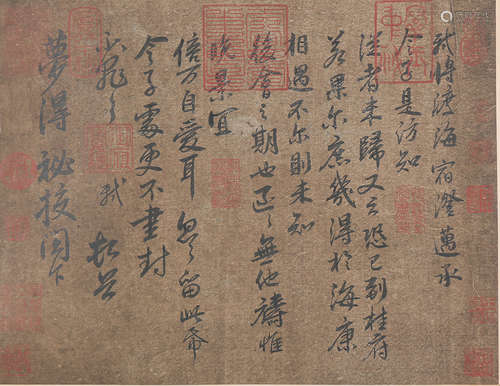 軾將渡海宿澄邁承
令子見訪知
從者未歸又云恐已到桂府
若果尔庶幾得於海康
相遇不尔則未知
後會之期也區區無他禱惟
晚景宜
倍万自愛耳忽忽留此帋
令子處更不重封
不罪不罪軾頓首
夢得祕校閤下